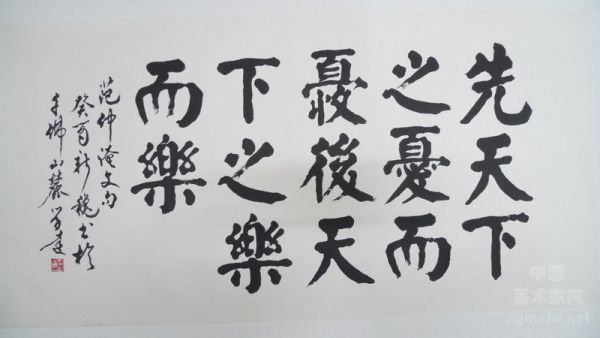 先天下
之憂而
憂後天
下之樂
而樂
范仲淹文句
癸酉新秋書於
千佛山麓
中国
美术家网
zgmsjw.net